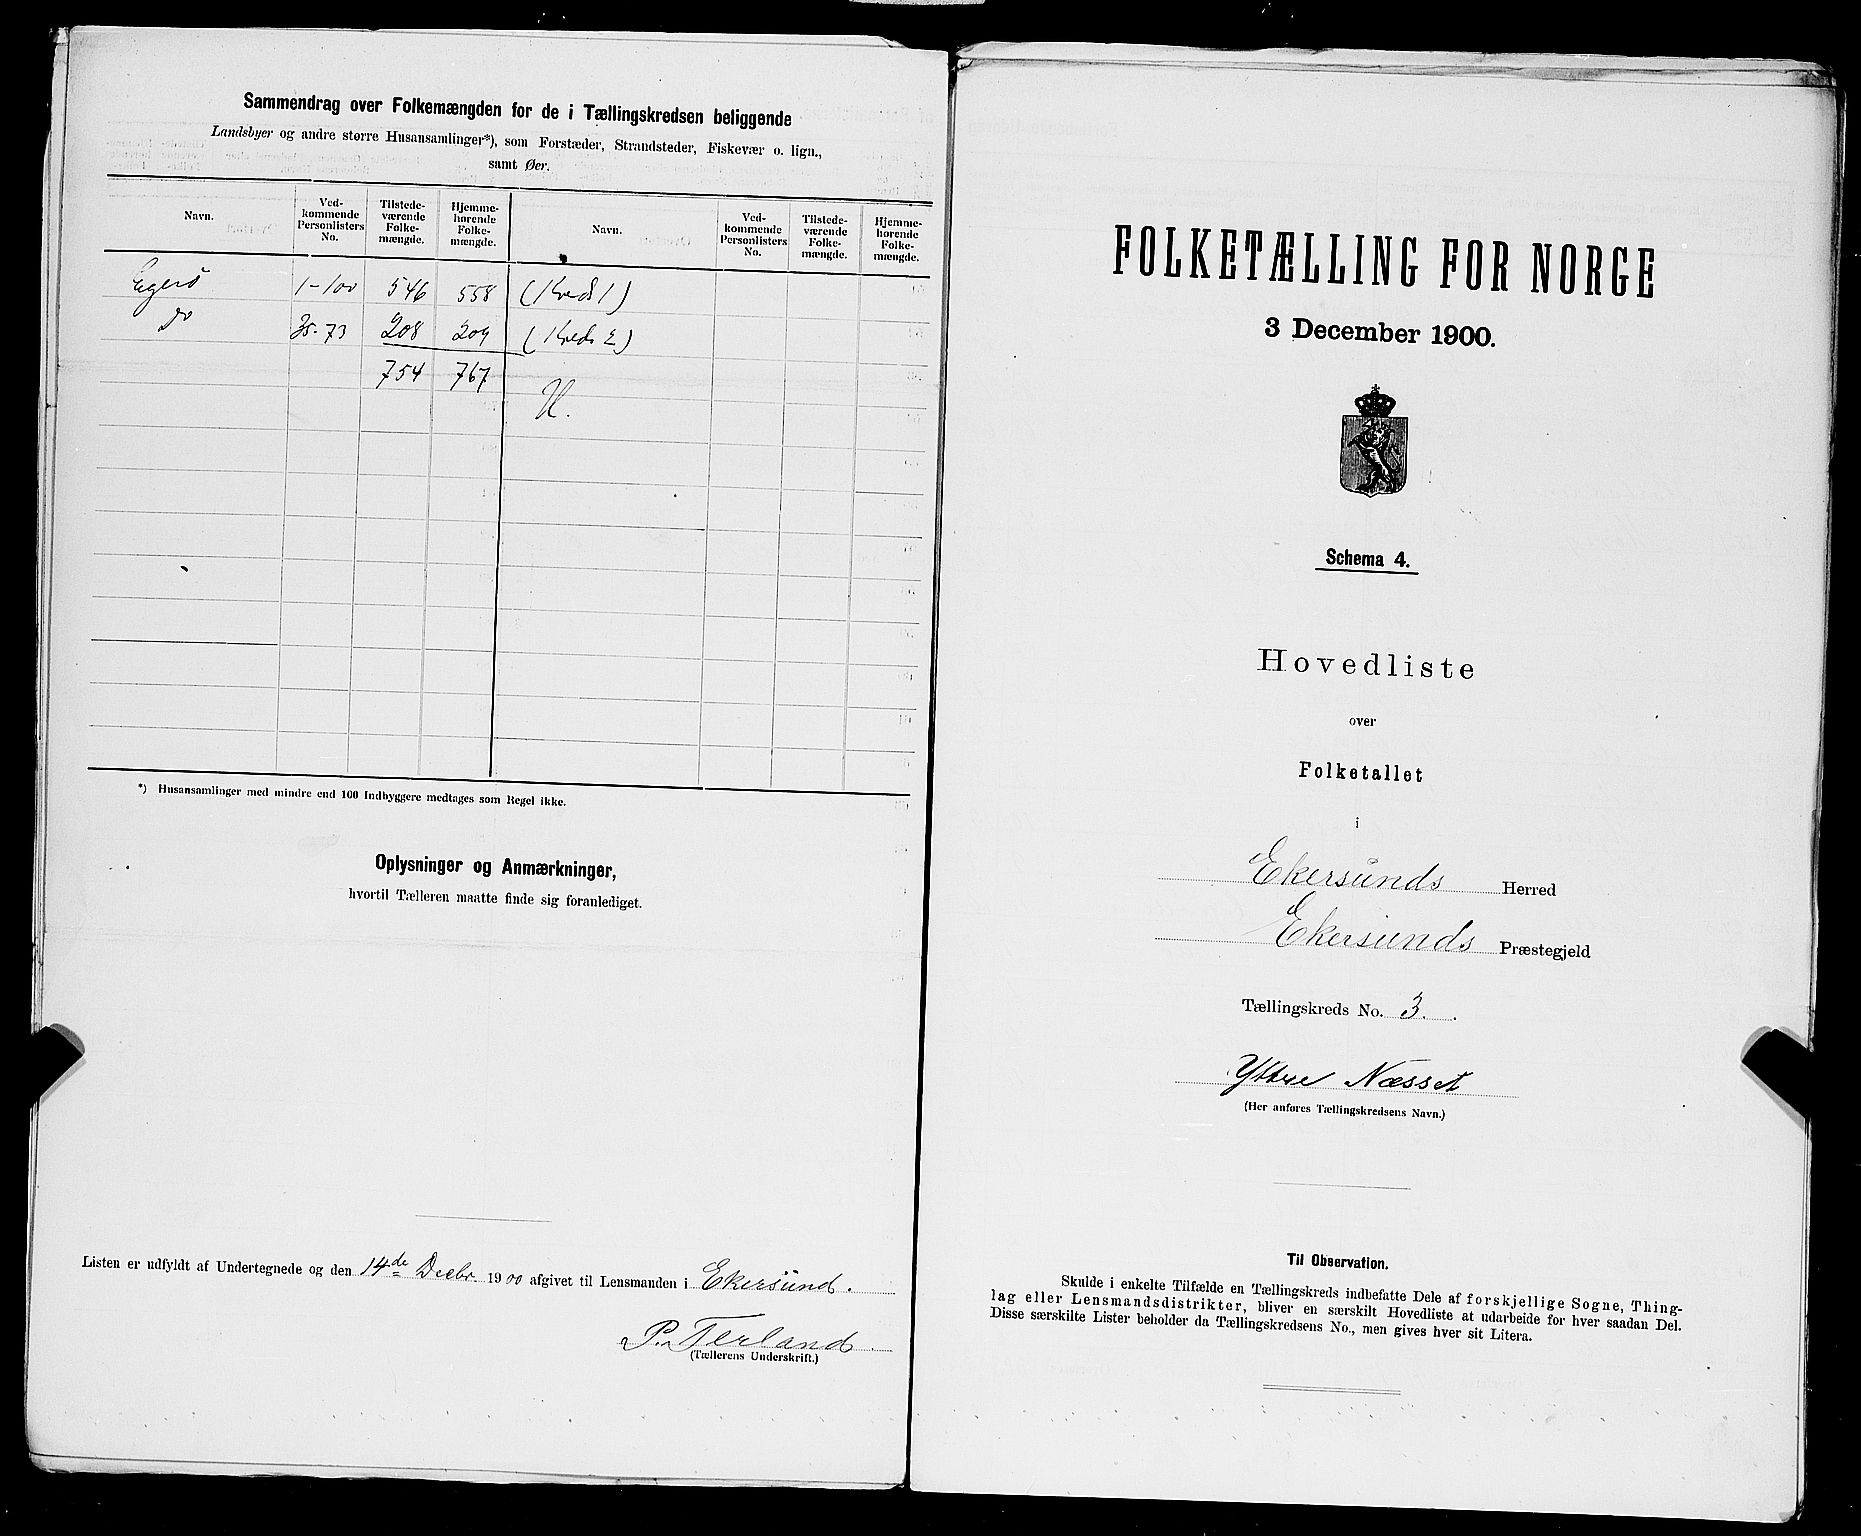 Sammendrag over Folkemængden for de i Tællingskredsen beliggende
Landsbyer og andre større Husansamlinger*), som Forstæder, Strandsteder, Fiskevær o. lign.,
samt Øer.
Navn. Ved-kommende Personlisters No. Tilstede-værende Folke-mængde. Hjemme-hørende Folke-mængde. Navn. Ved-kommende Personlisters No. Tilstede-værende Folke-mængde. Hjemme-hørende Folke-mængde.
Egerö 1-100 546 558 (Kreds 1)
do 35-73 208 209 (Kreds 2)
754 767
*) Husansamlinger med mindre end 100 Indbyggere medtages som Regel ikke.
Oplysninger og Anmærkninger,
hvortil Tælleren maatte finde sig foranlediget.
Listen er udfyldt af Undertegnede og den 14de Decbr. 1900 afgivet til Lensmanden i Ekersund.
P. Terland
(Tællerens Underskrift.)
FOLKETÆLLING FOR NORGE
3 December 1900.
Schema 4.
Hovedliste
over
Folketallet
i
Ekersunds Herred
Ekersunds Præstegjeld
Tællingskreds No. 3.
Yttre Næsset
(Her anføres Tællingskredsens Navn.)
Til Observation.
Skulde i enkelte Tilfælde en Tællingskreds indbefatte Dele af forskjellige Sogne, Thing-
lag eller Lensmandsdistrikter, bliver en særskilt Hovedliste at udarbeide for hver saadan Del.
Disse særskilte Lister beholder da Tællingskredsens No., men gives hver sit Litera.